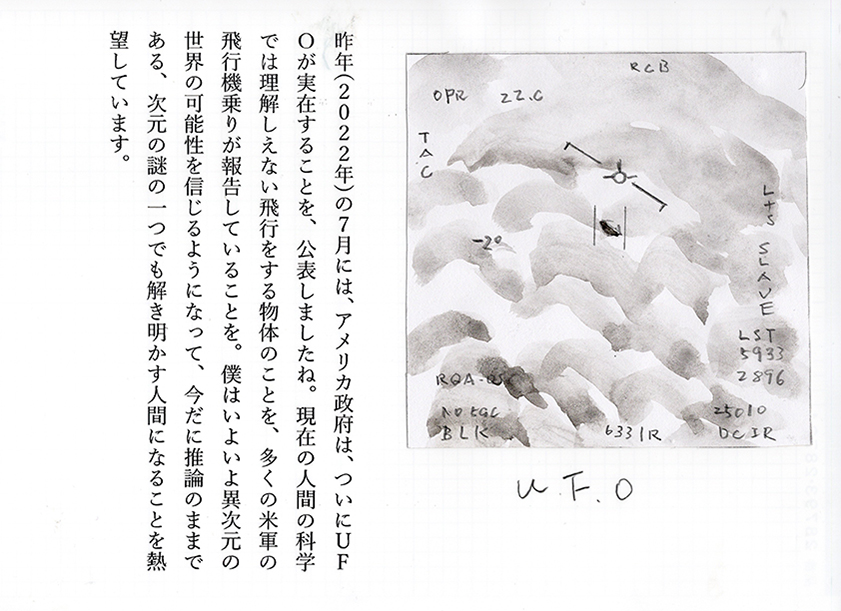 昨年(2022年)の7月には、アメリカ政府は、ついにUF
Oが実在することを、公表しましたね。現在の人間の科学
では理解しえない飛行をする物体のことを、多くの米軍の
飛行機乗りが報告していることを。僕はいよいよ異次元の
世界の可能性を信じるようになって、今だに推論のままで
ある、次元の謎の一つでも解き明かす人間になることを熱
望しています。
RCB
OPR 22.0
TAC
L+S SLAVE
-2°
LST
5933
2896
NOTGC
BLK
6331R
25010
DCIR
U.F.O